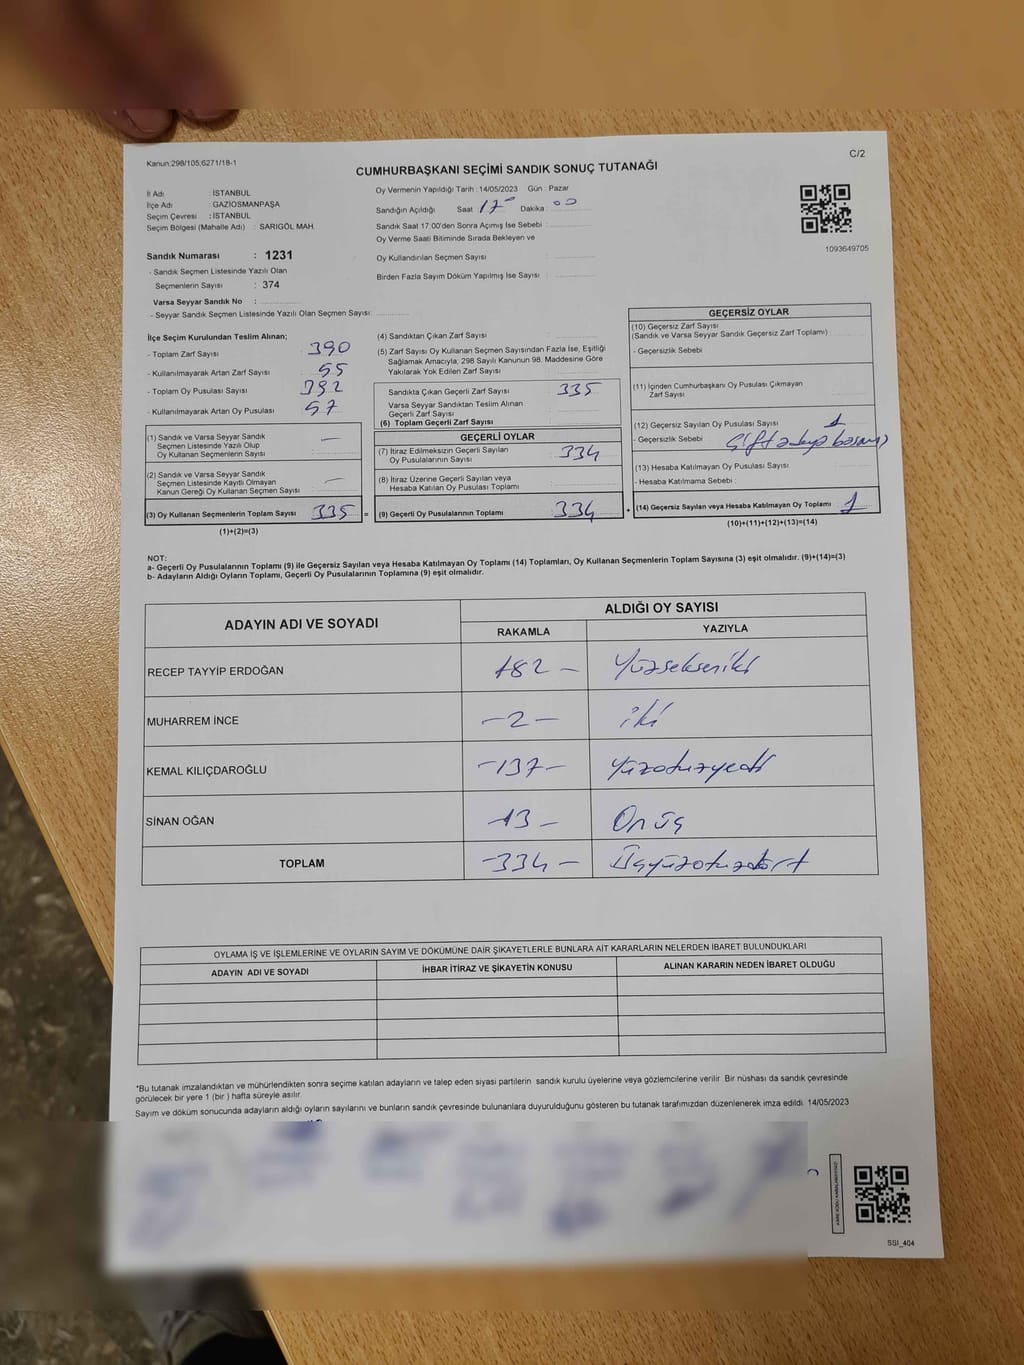 Kanun:298/105;6271/18-1
C/2
CUMHURBAŞKANI SEÇİMİ SANDIK SONUÇ TUTANAĞI
İl Adı : İSTANBUL
İlçe Adı : GAZİOSMANPAŞA
Seçim Çevresi : İSTANBUL
Seçim Bölgesi (Mahalle Adı) : SARIGÖL MAH.
Sandık Numarası : 1231
- Sandık Seçmen Listesinde Yazılı Olan
Seçmenlerin Sayısı : 374
Varsa Seyyar Sandık No :
- Seyyar Sandık Seçmen Listesinde Yazılı Olan Seçmen Sayısı:
Oy Vermenin Yapıldığı Tarih : 14/05/2023 Gün : Pazar
Sandığın Açıldığı Saat 17 Dakika 00
Sandık Saat 17:00'den Sonra Açımış İse Sebebi :
Oy Verme Saati Bitiminde Sırada Bekleyen ve
Oy Kullandırılan Seçmen Sayısı :
Birden Fazla Sayım Döküm Yapılmış İse Sayısı :
1093649705
İlçe Seçim Kurulundan Teslim Alınan;
- Toplam Zarf Sayısı 390
- Kullanılmayarak Artan Zarf Sayısı 55
- Toplam Oy Pusulası Sayısı 392
- Kullanılmayarak Artan Oy Pusulası 57
(1) Sandık ve Varsa Seyyar Sandık
Seçmen Listesinde Yazılı Olup
Oy Kullanan Seçmenlerin Sayısı : —
(2) Sandık ve Varsa Seyyar Sandık
Seçmen Listesinde Kayıtlı Olmayan
Kanun Gereği Oy Kullanan Seçmen Sayısı : —
(3) Oy Kullanan Seçmenlerin Toplam Sayısı 335 =
(1)+(2)=(3)
(4) Sandıktan Çıkan Zarf Sayısı :
(5) Zarf Sayısı Oy Kullanan Seçmen Sayısından Fazla İse, Eşitliği
Sağlamak Amacıyla; 298 Sayılı Kanunun 98. Maddesine Göre
Yakılarak Yok Edilen Zarf Sayısı
Sandıkta Çıkan Geçerli Zarf Sayısı : 335
Varsa Seyyar Sandıktan Teslim Alınan
Geçerli Zarf Sayısı
(6) Toplam Geçerli Zarf Sayısı :
GEÇERLİ OYLAR
(7) İtiraz Edilmeksizin Geçerli Sayılan
Oy Pusulalarının Sayısı : 334
(8) İtiraz Üzerine Geçerli Sayılan veya
Hesaba Katılan Oy Pusulası Toplamı :
(9) Geçerli Oy Pusulalarının Toplamı : 334 +
GEÇERSİZ OYLAR
(10) Geçersiz Zarf Sayısı
(Sandık ve Varsa Seyyar Sandık Geçersiz Zarf Toplamı)
- Geçersizlik Sebebi
(11) İçinden Cumhurbaşkanı Oy Pusulası Çıkmayan
Zarf Sayısı
(12) Geçersiz Sayılan Oy Pusulası Sayısı : 1
- Geçersizlik Sebebi : Çift
(13) Hesaba Katılmayan Oy Pusulası Sayısı :
- Hesaba Katılmama Sebebi :
(14) Geçersiz Sayılan veya Hesaba Katılmayan Oy Toplamı 1
(10)+(11)+(12)+(13)=(14)
NOT:
a- Geçerli Oy Pusulalarının Toplamı (9) ile Geçersiz Sayılan veya Hesaba Katılmayan Oy Toplamı (14) Toplamları, Oy Kullanan Seçmenlerin Toplam Sayısına (3) eşit olmalıdır. (9)+(14)=(3)
b- Adayların Aldığı Oyların Toplamı, Geçerli Oy Pusulalarının Toplamına (9) eşit olmalıdır.
ADAYIN ADI VE SOYADI
ALDIĞI OY SAYISI
RAKAMLA YAZIYLA
RECEP TAYYİP ERDOĞAN 182 — Yüzsekseniki
MUHARREM İNCE — 2 — iki
KEMAL KILIÇDAROĞLU — 137 — Yüzotuzyedi
SİNAN OĞAN 13 — Onüç
TOPLAM — 334 — Üçyüzotuzdört
OYLAMA İŞ VE İŞLEMLERİNE VE OYLARIN SAYIM VE DÖKÜMÜNE DAİR ŞİKAYETLERLE BUNLARA AİT KARARLARIN NELERDEN İBARET BULUNDUKLARI
ADAYIN ADI VE SOYADI İHBAR İTİRAZ VE ŞİKAYETİN KONUSU ALINAN KARARIN NEDEN İBARET OLDUĞU
*Bu tutanak imzalandıktan ve mühürlendikten sonra seçime katılan adayların ve talep eden siyasi partilerin sandık kurulu üyelerine veya gözlemcilerine verilir. Bir nüshası da sandık çevresinde
görülecek bir yere 1 (bir ) hafta süreyle asılır.
Sayım ve döküm sonucunda adayların aldığı oyların sayılarını ve bunların sandık çevresinde bulunanlara duyurulduğunu gösteren bu tutanak tarafımızdan düzenlenerek imza edildi. 14/05/2023
SSI_404